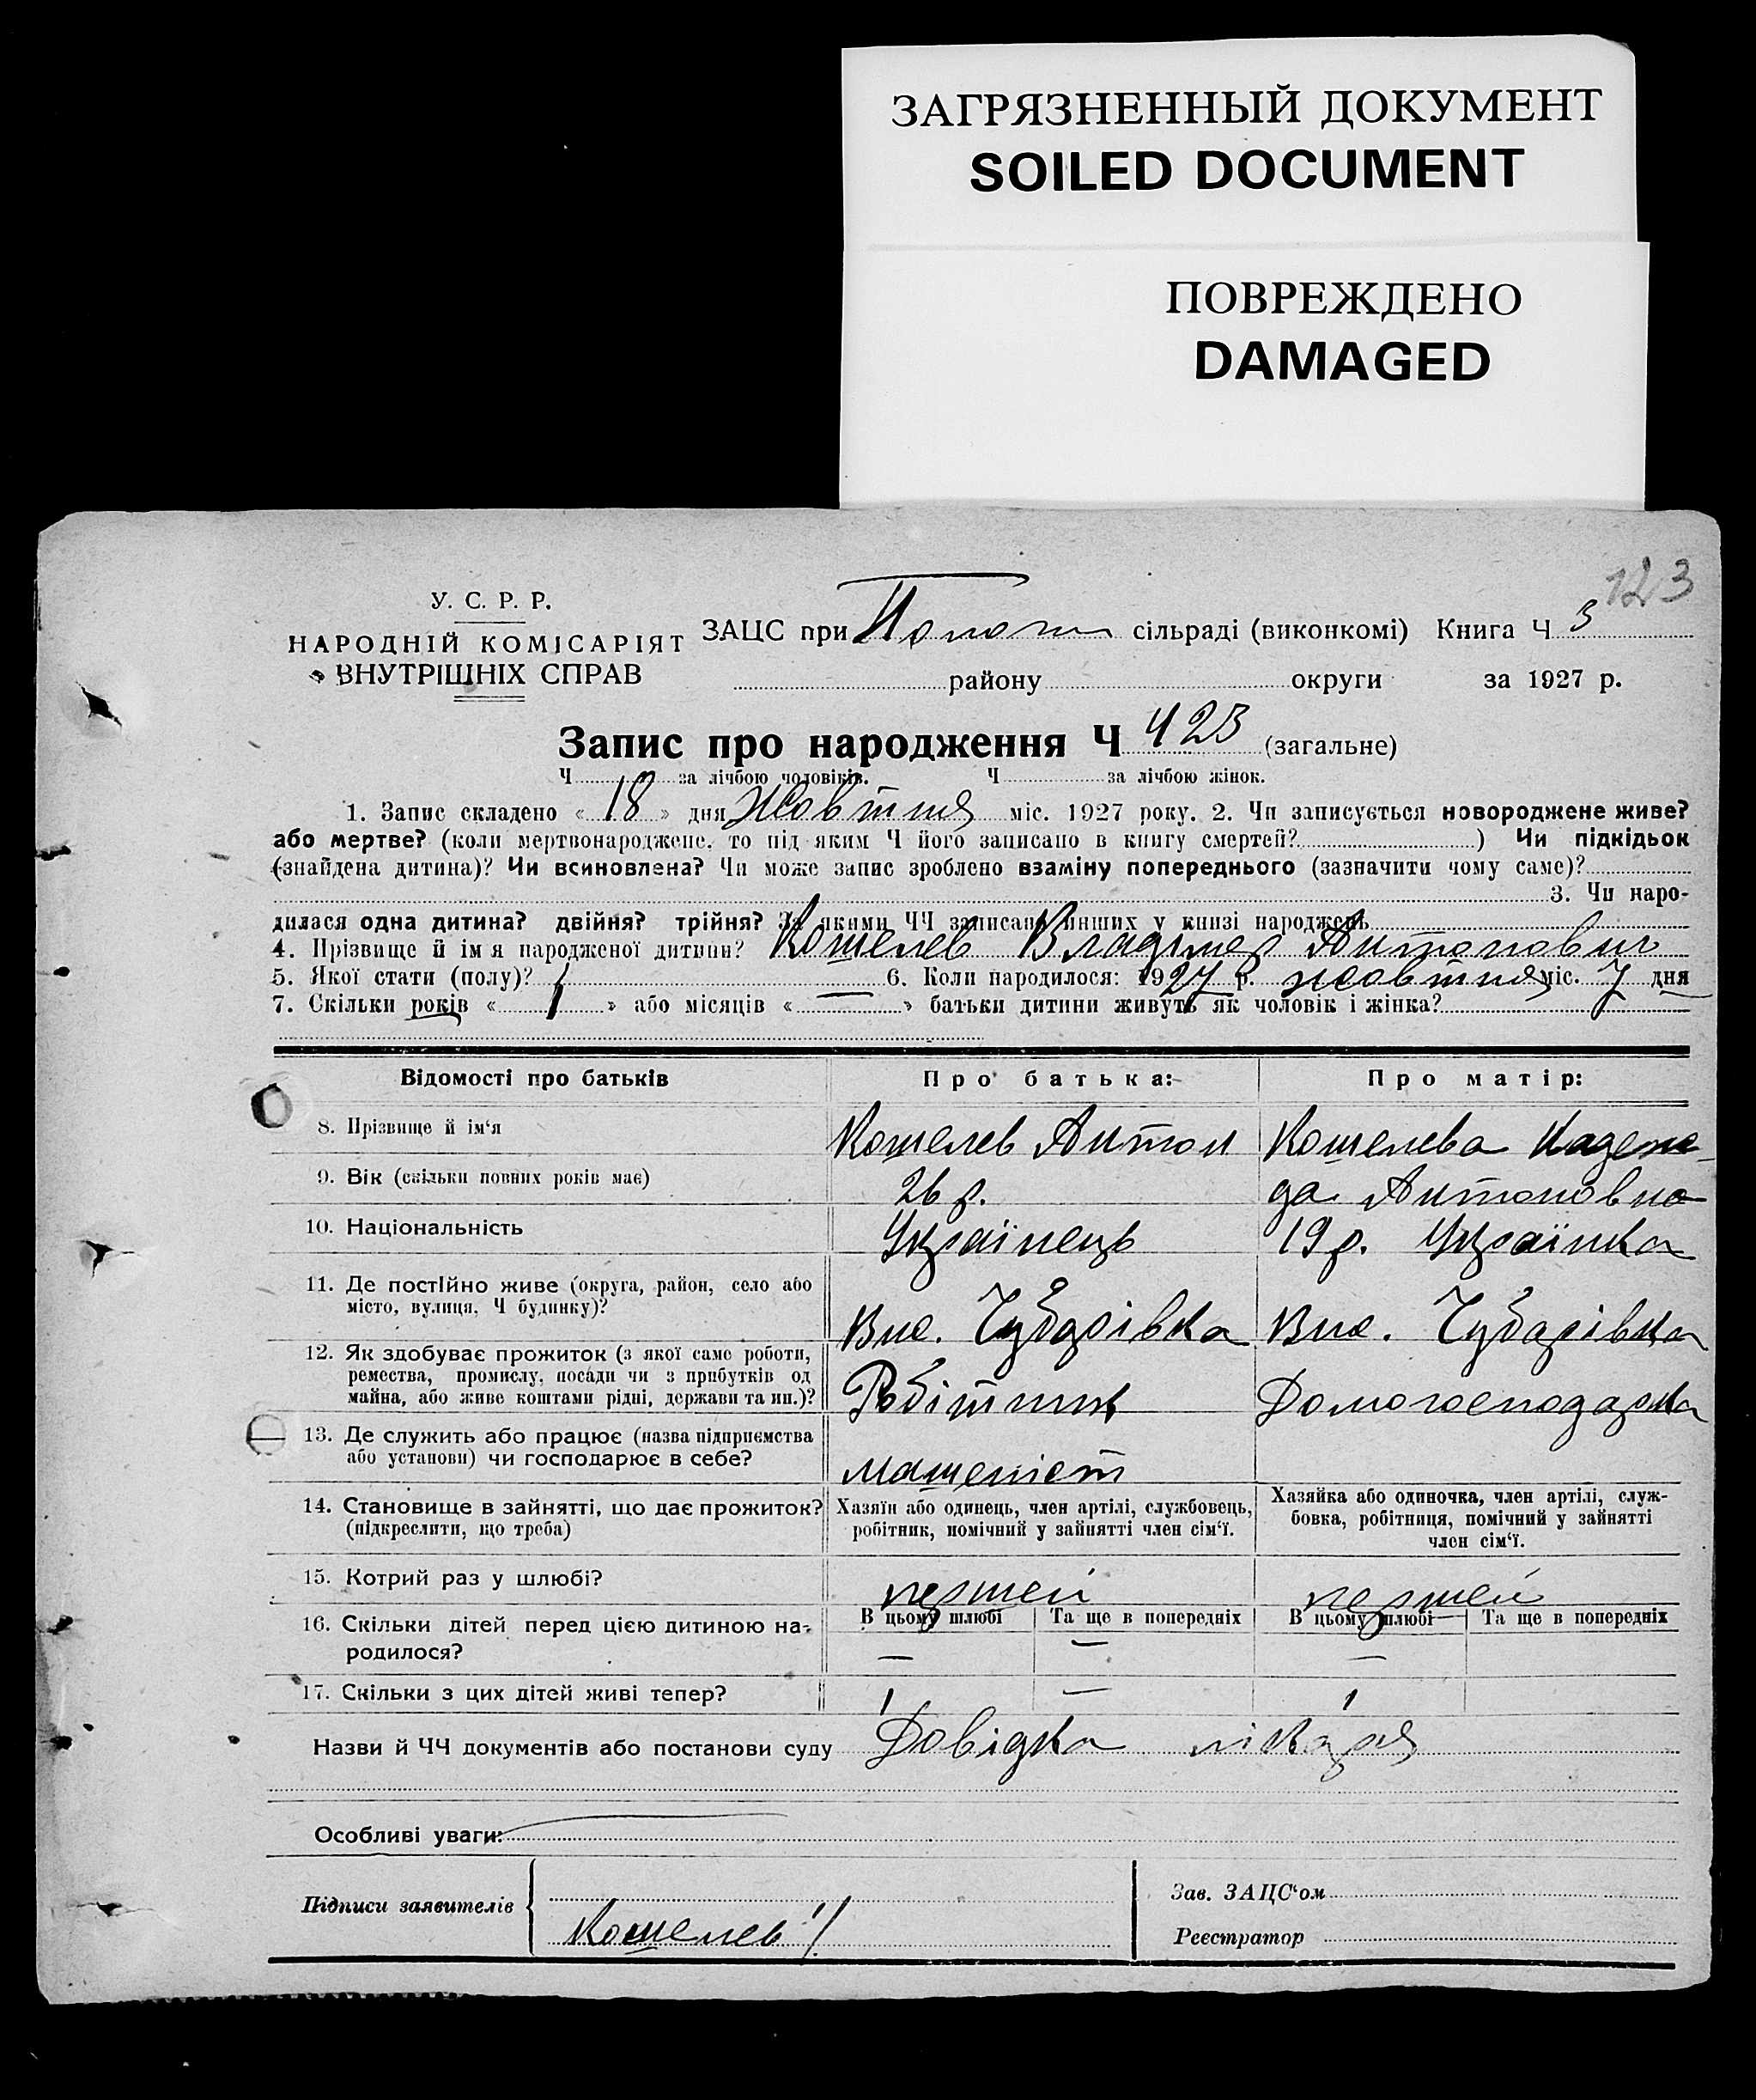 ЗАГРЯЗНЕННЫЙ ДОКУМЕНТ
SOILED DOCUMENT
ПОВРЕЖДЕНО
DAMAGED
123
У. С. Р. Р.
НАРОДНІЙ КОМІСАРІЯТ
ВНУТРІШНІХ СПРАВ
ЗАЦС при сільраді (виконкомі) Книга Ч 3
району округи за 1927 р.
Запис про народження Ч 423 (загальне)
Ч за лічбою чоловіків. Ч за лічбою жінок.
1. Запис складено « 18 » дня Жовтня міс. 1927 року. 2. Чи записується новороджене живе?
або мертве? (коли мертвонароджене, то під яким Ч його записано в книгу смертей? ) Чи підкідьок
(знайдена дитина)? Чи всиновлена? Чи може запис зроблено взаміну попереднього (зазначити чому саме)?
3. Чи наро-
дилася одна дитина? двійня? трійня? За якими ЧЧ записано инших у книзі народжень
4. Прізвище й ім я народженої дитини? Кошелев Владимер Антонович
5. Якої стати (полу)? 6. Коли народилося: 1927 р. жовтня міс. 7 дня
7. Скільки років « 1 » або місяців « — » батьки дитини живуть як чоловік і жінка?
Відомості про батьків Про батька: Про матір:
8. Прізвище й ім‘я Кошелев Антон Кошелева Надеж-
9. Вік (скільки повних років має) 26 р. да Антоновна
10. Національність Українець 19 р. Українка
11. Де постійно живе (округа, район, село або
місто, вулиця, Ч будинку)? Чубарівка Чубарівка
12. Як здобуває прожиток (з якої саме роботи,
ремества, промислу, посади чи з прибутків од
майна, або живе коштами рідні, держави та ин.)? Робітник Домогосподарка
13. Де служить або працює (назва підприємства
або установи) чи господарює в себе? машеніст
14. Становище в зайнятті, що дає прожиток?
(підкреслити, що треба)
Хазяїн або одинець, член артілі, службовець,
робітник, помічний у зайнятті член сім‘ї.
Хазяйка або одиночка, член артілі, служ-
бовка, робітниця, помічний у зайнятті
член сім‘ї.
15. Котрий раз у шлюбі? першей першей
16. Скільки дітей перед цією дитиною на-
родилося?
В цьому шлюбі Та ще в попередніх В цьому шлюбі Та ще в попередніх
— — —
17. Скільки з цих дітей живі тепер? 1 — 1
Назви й ЧЧ документів або постанови суду Довідка лікаря
Особливі уваги:
Підписи заявителів
Кошелев
Зав. ЗАЦС‘ом
Реєстратор